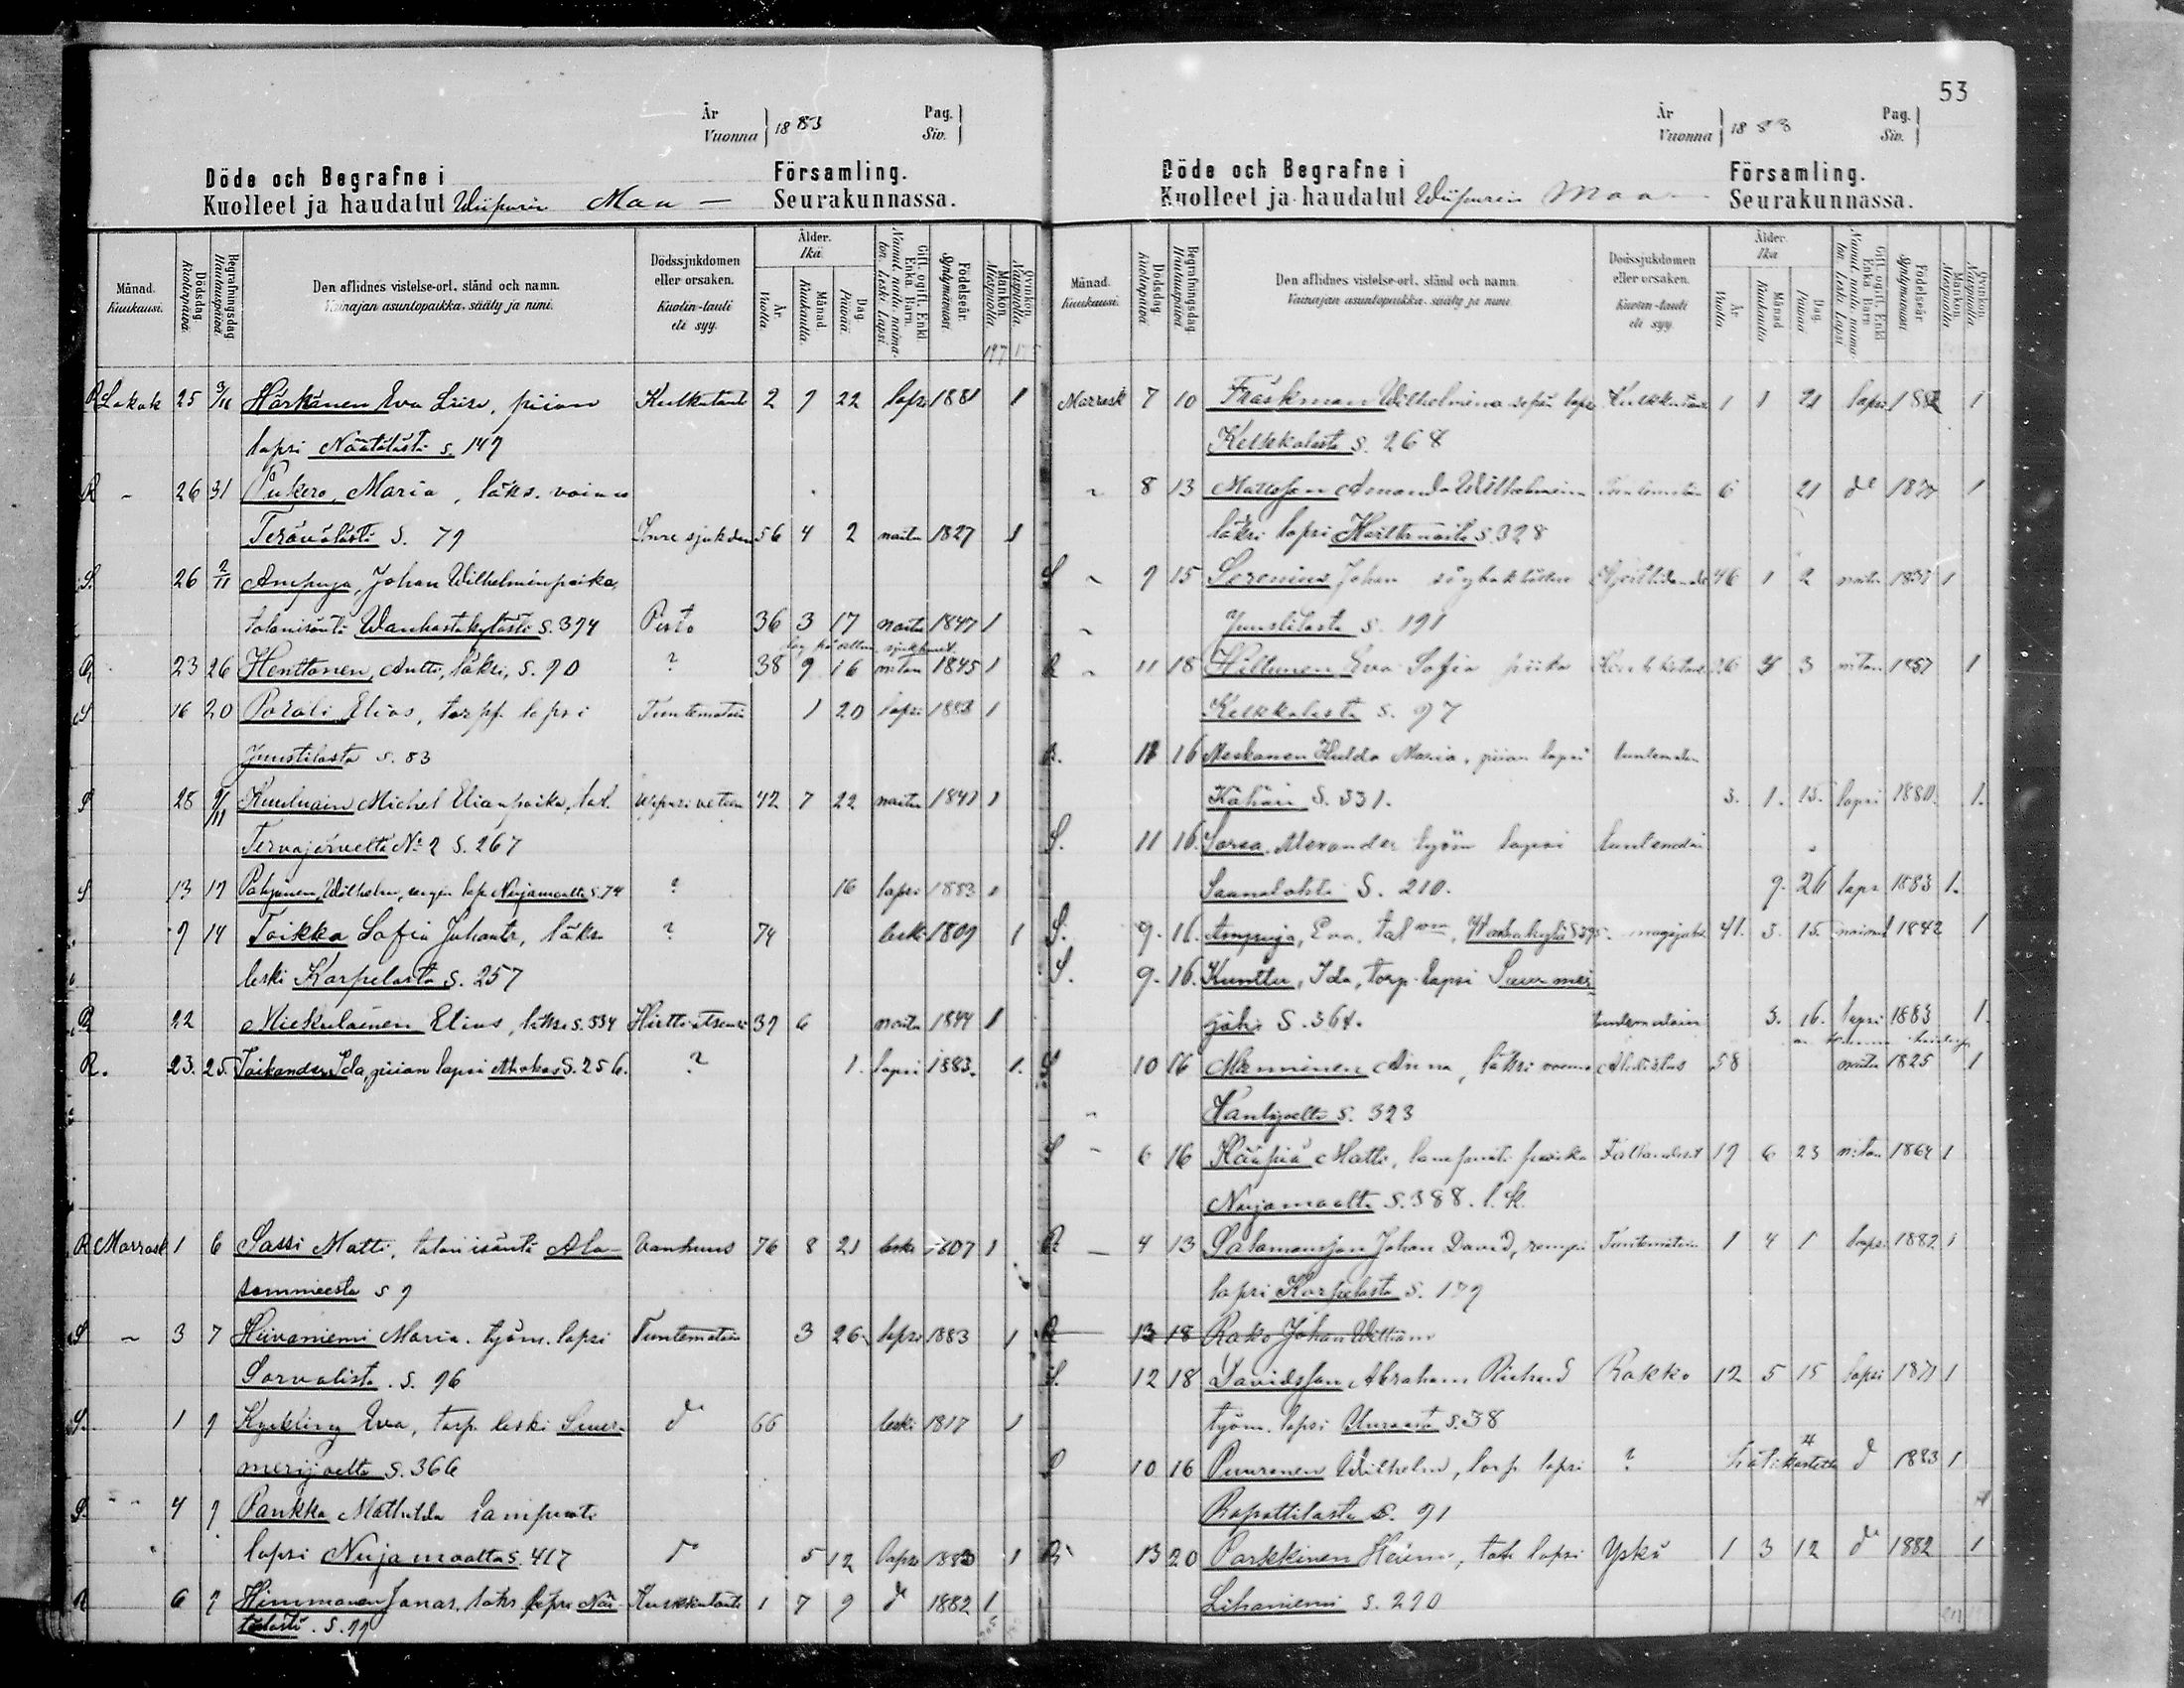 År
Vuonna } 1883
Pag.
Siv. }
Döde och Begrafne i Församling.
Kuolleet ja haudatut Wiipurin Maa — Seurakunnassa.
Månad. Kuukausi.
Dödsdag Kuolinpäivä.
Begrafningsdag Hautauspäivä.
Den aflidnes vistelse-ort, stånd och namn.
Vainajan asuntopaikka, sääty ja nimi.
Dödssjukdomen eller orsaken.
Kuolin-tauti eli syy.
Ålder. Ikä.
År. Vuotta.
Månad. Kuukautta.
Dag. Päivää.
Gift, ogift, Enkl. Enka, Barn.
Nainut, naitu, naimaton, leski, Lapsi.
Födelseår. Syntymävuosi.
Mankön. Miespuolia.
Qvinkön. Naispuolia.
197
R Lokak 25 3/11 Härkänen Eva Liisa, piian Kulkutauti 2 9 22 lapsi 1881 1
lapsi Näätälästä s. 149
R - 26 31 Pukero, Maria, läks. vaimo
Terävälästi S. 79 Inre sjukdom 56 4 2 naitu 1827 1
S. 26 2/11 Ampuja, Johan Wilhelmin poika,
talonisäntä Wanhastakylästä S. 394 Pisto 36 3 17 naitu 1847 1
R 23 26 Henttonen, Antti, läksi, S. 90 ? 38 9 16 niton 1845 1
S 16 20 Parali Elias, torpp. lapsi Tuntematoin 1 20 lapsi 1883 1
Juustilasta s. 83
S 28 9/11 Michel Elian poika, tal. 42 7 22 naitu 1841 1
Tervajärveltä No 2 S. 267
S 13 17 Pohjanen, Wilhelm, rengin laps Nuijamaalta S. 74 ? 16 lapsi 1883 1
9 14 Toikka Sofia Juhontr, läks. ? 74 leski 1809 1
leski Karpelasta S. 257
R 22 Mieskulainen Elias, läksi s. 334 Hirtti itsensä 39 6 naitu 1844 1
R. 23. 25. Toikander Ida, piian lapsi Alhokas S. 256. ? 1. lapsi 1883. 1.
R Marrask 1 6 Sassi Matti, talon isäntä Ala- Vanhuus 76 8 21 leski 1807 1
sommeesta s 9
S - 3 7 Hiivaniemi Maria. työm. lapsi Tuntematoin 3 26 lapsi 1883 1
Sorvalista. S. 96
S. 1 9 Kyckling Eva, torp. leski Suur- do 66 leski 1817 1
merijoelta S. 366
S. - - 4 9 Pankka Mathilda lampuoti
lapsi Nuijamaalta S. 417 do 5 12 lapsi 1883 1
R 6 9 Himmanen Jonas, läks. lapsi Nää- Kurkkutauti 1 7 9 do 1882 1
tälästä. S. 99
53
År
Vuonna } 1883
Pag.
Siv. }
Döde och Begrafne i Församling.
Kuolleet ja haudatut Wiipurin Maa — Seurakunnassa.
Månad. Kuukausi.
Dödsdag. Kuolinpäivä.
Begrafningsdag Hautauspäivä.
Den aflidnes vistelse-ort, stånd och namn.
Vainajan asuntopaikka, sääty ja nimi.
Dödssjukdomen eller orsaken.
Kuolin-tauti eli syy.
Ålder. Ikä.
År. Vuotta.
Månad. Kuukautta.
Dag. Päivää.
Gift, ogift, Enkl. Enka, Barn.
Nainut, naitu, naimaton, leski, Lapsi.
Födelseår. Syntymävuosi.
Mankön. Miespuolia.
Qvinkön. Naispuolia.
Marrask 7 10 Fräskman Wilhelmina sepän lapsi Kurkkutauti 1 1 21 lapsi 1882 1
Kelkkalasta S. 268
- 8 13 Mattsson Amanda Wilhelmina Tuntematoin 6 21 do 1877 1
läksi lapsi S. 328
S - 9 15 Serenius Johan 46 1 2 naitu 1837 1
Juustilasta S. 191
R - 11 18 Hiltunen Eva Sofia piika 26 3 niton 1857 1
Kelkkalasta S. 97
R. 12 16 Meskanen Hulda Maria, piian lapsi tuntematon
Kähäri S. 331. 3. 1. 13. lapsi 1880. 1.
S. 11 16. Sorsa Alexander työm. lapsi tuntematoin
S. 210. 9. 26 laps 1883 1.
S. 9. 16. Ampuja, Eva, tal. vm, Wanhakylä S 395. 41. 3. 15. nainut 1842 1
S. 9. 16. Kuntler, Ida, torp. lapsi Suur meri
joki S. 364. tuntematoin 3. 16. lapsi 1883 1.
S 10 16 Manninen Anna, läksi vaimo Ahdistus 58 naitu 1825 1
S. 323
S - 6 16 Kääpiä Matti, lampuoti poika 19 6 23 niton 1864 1
Nuijamaalta S. 388. l. k.
R - 4 13 Salomonsson Johan David, rengin Tuntematoin 1 4 1 lapsi 1882 1
lapsi Karpelasta S. 179
R 13 18 Rako Johan William
S. 12 18 Davidsson Abraham Richard Rokko 12 5 15 lapsi 1871 1
työm. lapsi Uuraasta S. 38
S 10 16 Puuronen Wilhelm, torp. lapsi ? hätä kastettu do 1883 1
Rapattilasta S. 91
R 13 20 Parkkinen Helena, tal. lapsi Yskä 1 3 12 do 1882 1
Lihaniemi S. 290